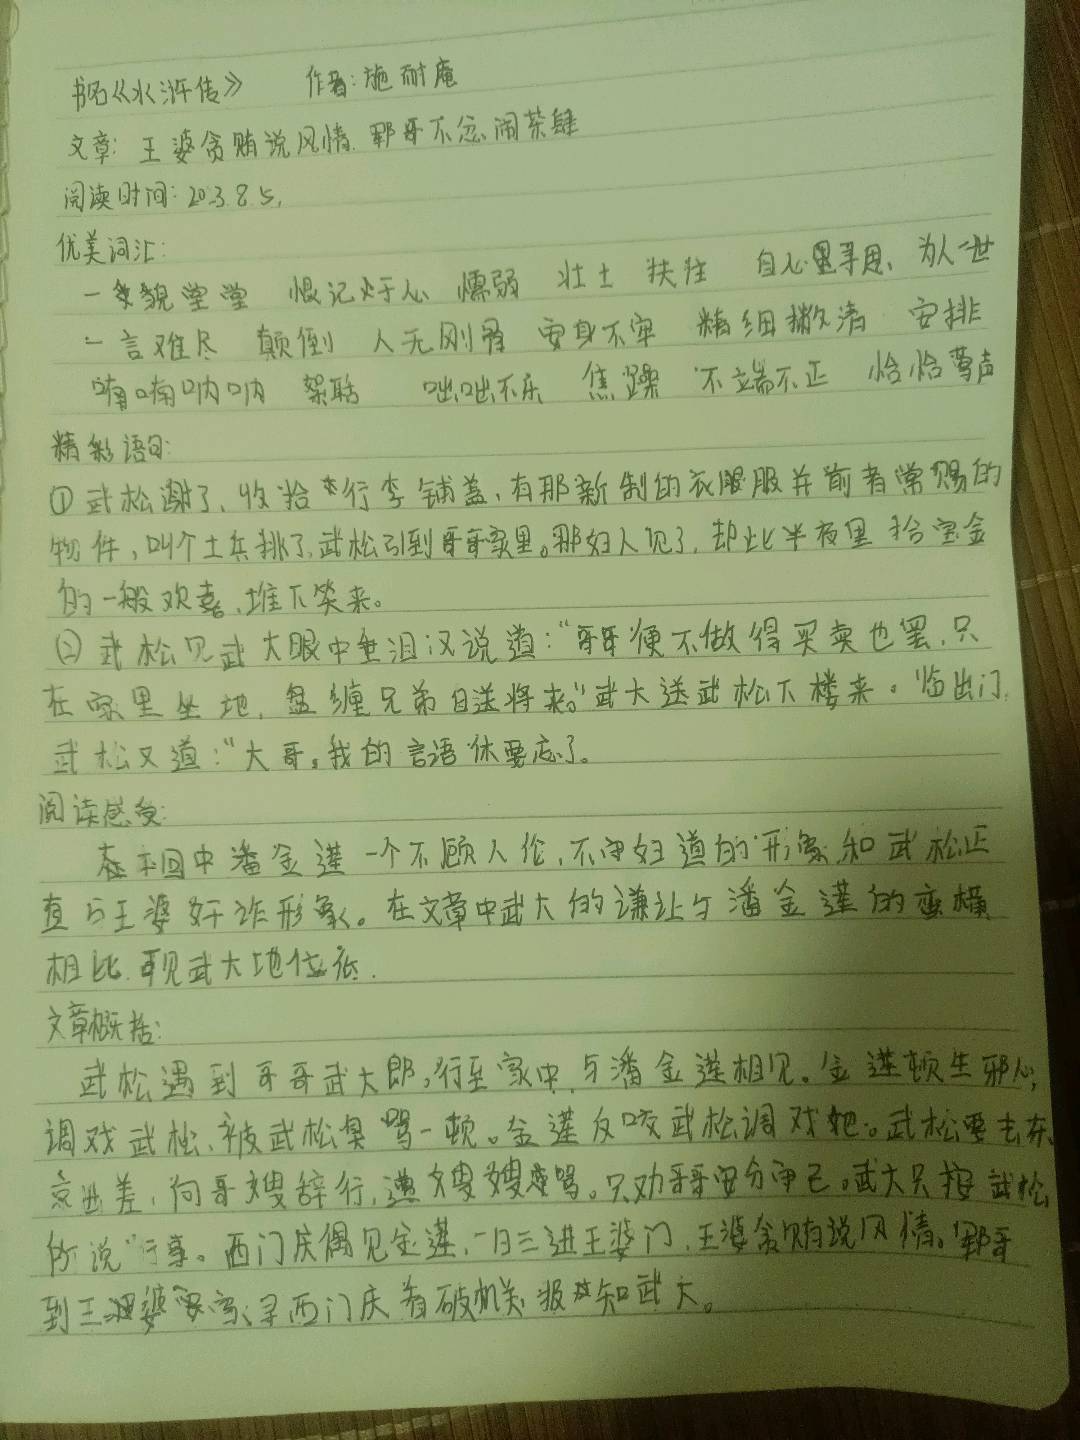 书名《水浒传》 作者:施耐庵
文章: 王婆贪贿说风情.郓哥不忿闹茶肆
阅读时间: 20.3.8.5.
优美词汇:
一貌堂堂 恨记于心 懦弱 壮士 扶住 自心里寻思、为人一世
一言难尽 颠倒 人无刚骨 安身不牢 精细撇清 安排
喃喃呐呐 絮聒 咄咄不乐 焦躁 不端不正 恰恰莺声
精彩语句:
①武松谢了,收拾行李铺盖,有那新制的衣服并前者赏赐的
物件,叫个土兵挑了,武松引到哥哥家里。那妇人见了,却比半夜里拾宝金
的一般欢喜,堆下笑来。
②武松见武大眼中垂泪又说道:“哥哥便不做得买卖也罢,只
在家里坐地,盘缠兄弟自送将来。”武大送武松下楼来。临出门,
武松又道:“大哥,我的言语休要忘了。
阅读感受:
在本回中潘金莲一个不顾人伦,不守妇道的形象和武松正
直与王婆奸诈形象。在文章中武大的谦让与潘金莲的蛮横
相比.可见武大地位低.
文章概括:
武松遇到哥哥武大郎,行至家中,与潘金莲相见。金莲顿生邪心,
调戏武松、被武松臭骂一顿。金莲反咬武松调戏她。武松要去东
京出差,向哥嫂辞行,遭嫂嫂骂。只劝哥哥安分守己。武大只按武松
所说“行事。西门庆偶见金莲,一日三进王婆门,王婆贪贿说风情。郓哥
到王婆家寻西门庆看破机关,报知武大。